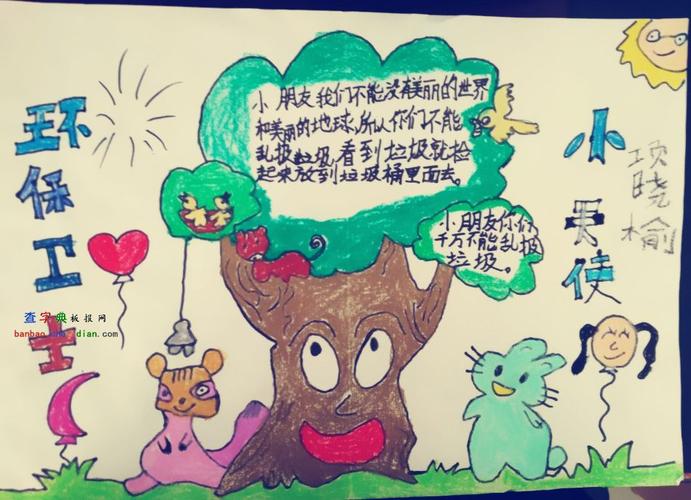 环保卫士
小朋友我们不能没有美丽的世界
和美丽的地球,所以你们不能
乱扱垃圾,看到垃圾就捡
起来放到垃圾桶里面去。
小朋友你们
千万不能乱扱
垃圾。
小天使
项晓榆
查字典板报网